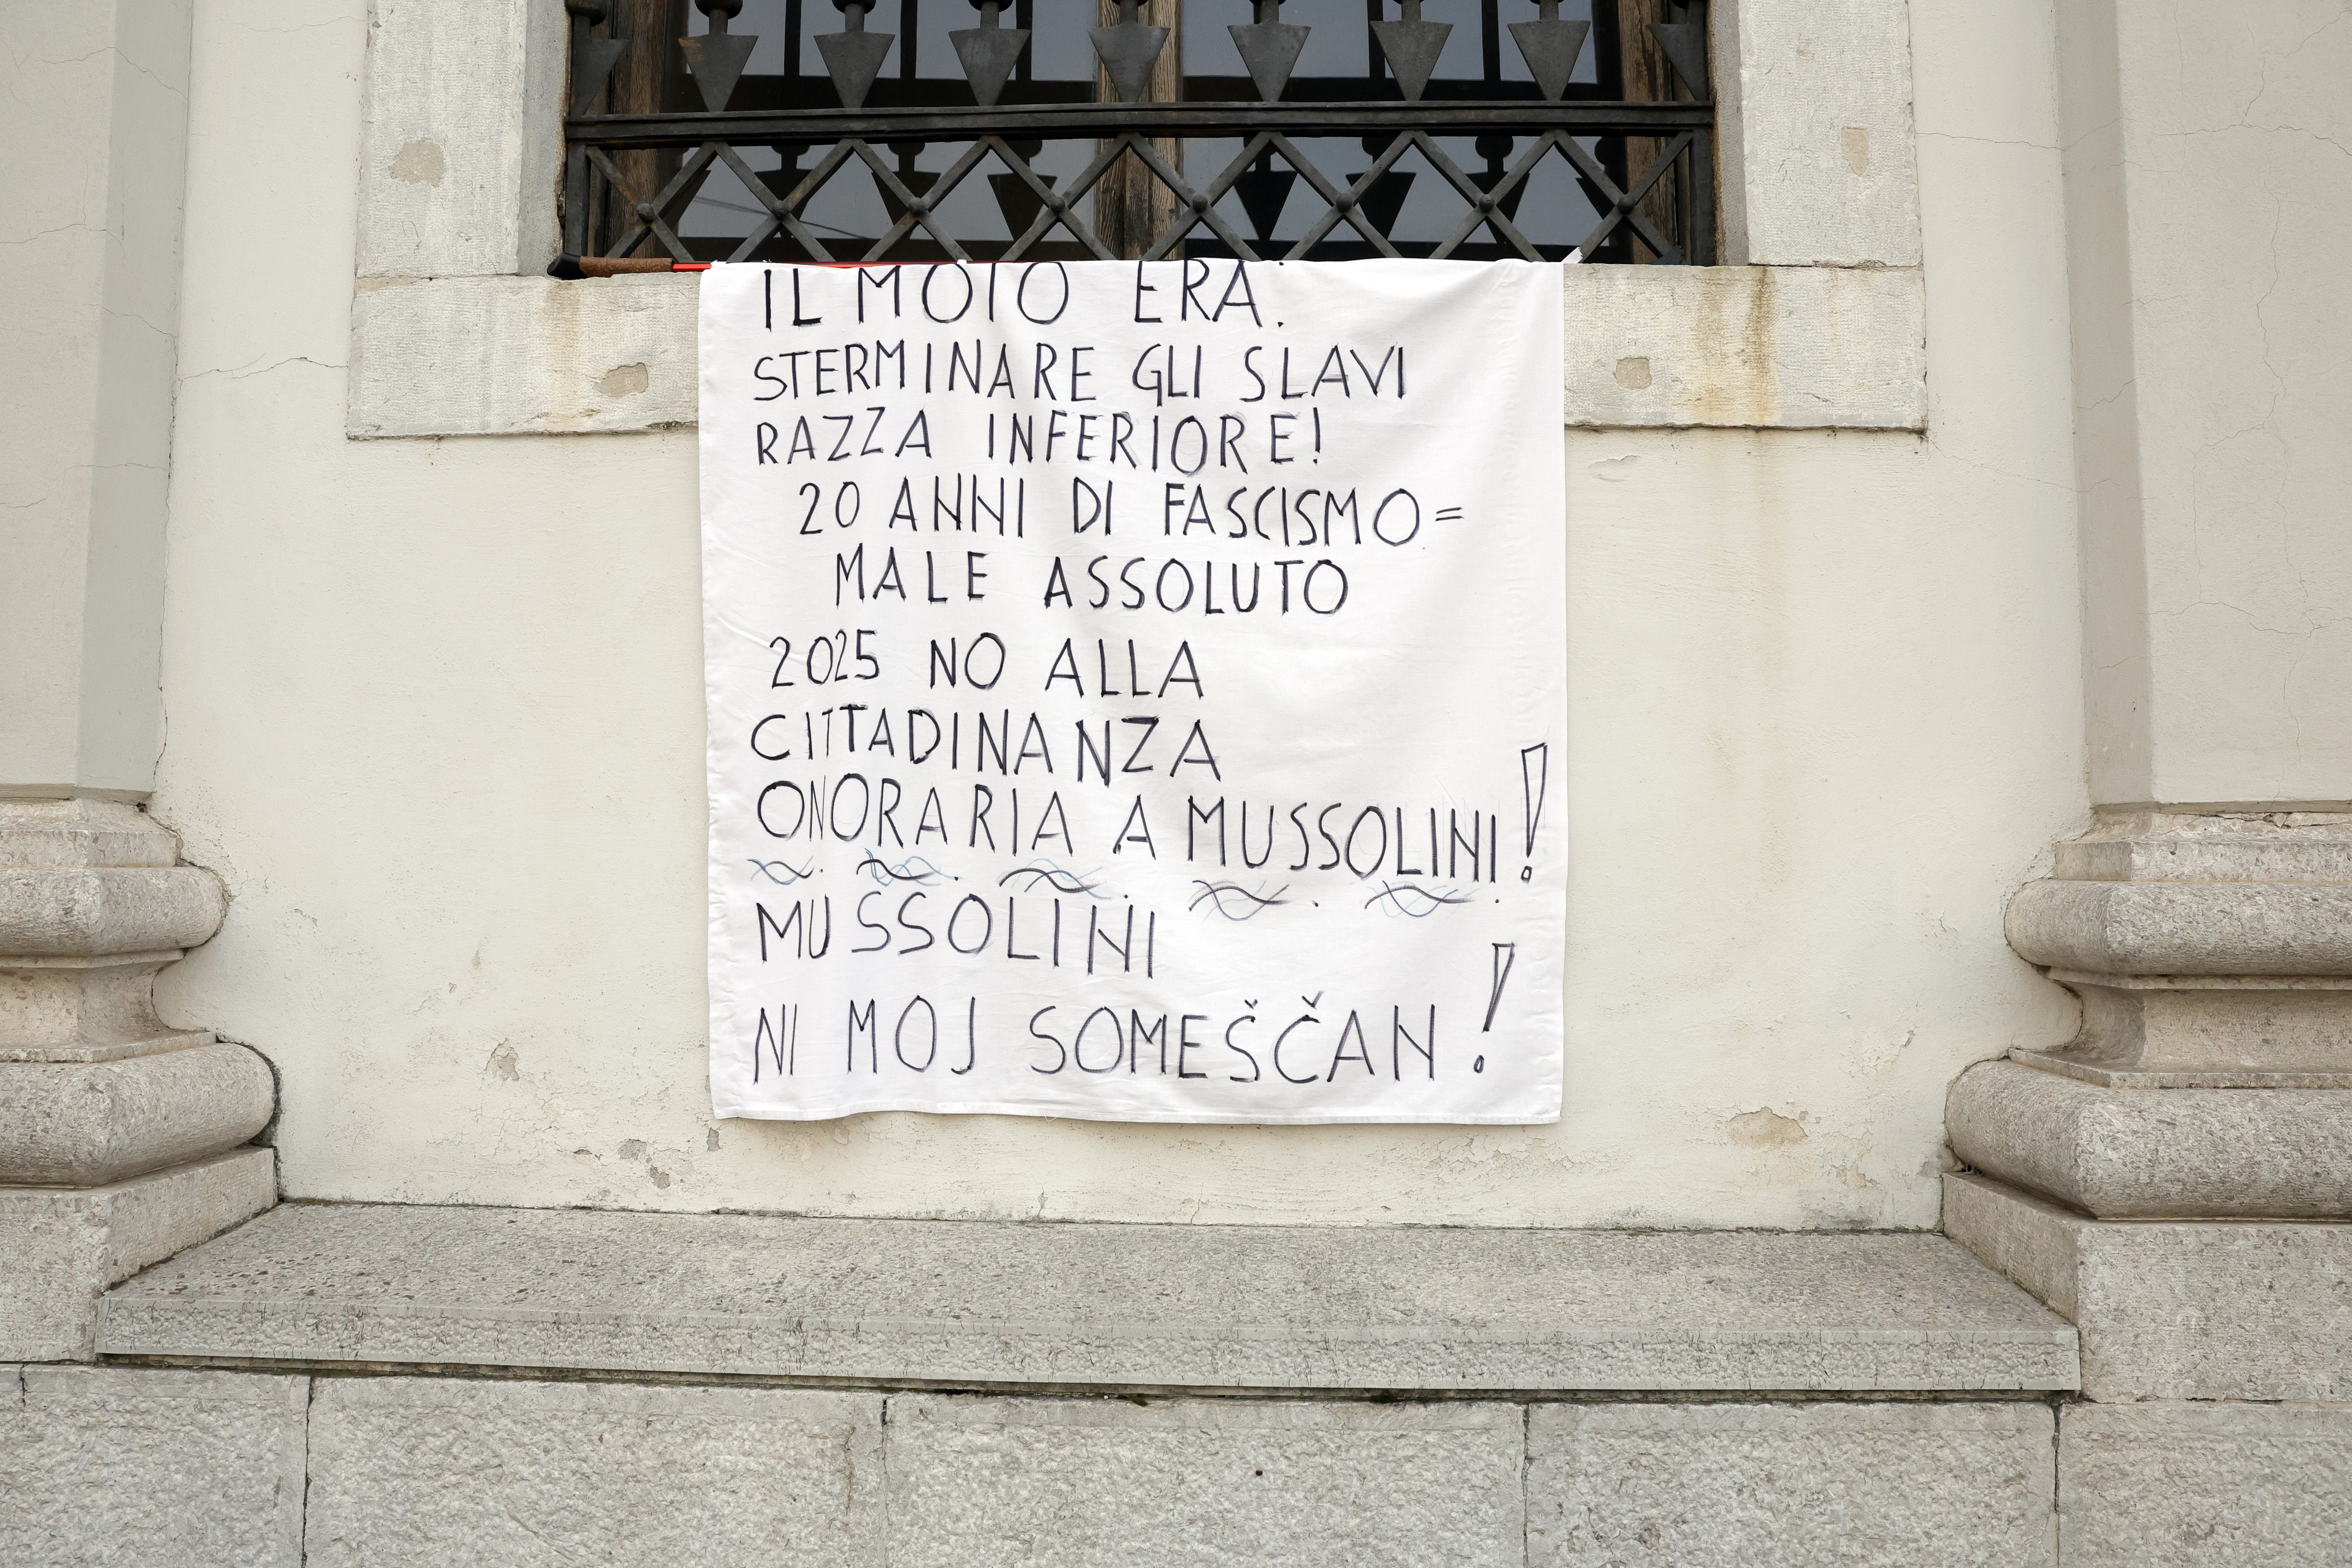 IL MOTO ERA:
STERMINARE GLI SLAVI
RAZZA INFERIORE!
20 ANNI DI FASCISMO =
MALE ASSOLUTO
2025 NO ALLA
CITTADINANZA
ONORARIA A MUSSOLINI!
MUSSOLINI
NI MOJ SOMEŠČAN!